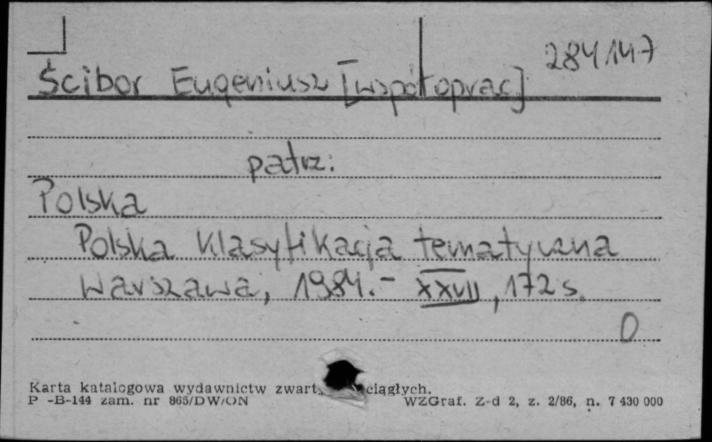 284147
Ścibor Eugeniusz [współoprac]
patrz:
Polska
Polska klasyfikacja tematyczna
Warszawa, 1984.- XXVII, 172 s.
0
Karta katalogowa wydawnictw zwart ciągłych.
P -B-144 zam. nr 865/DW/ON WZGraf. Z-d 2, z. 2/86, n. 7 430 000